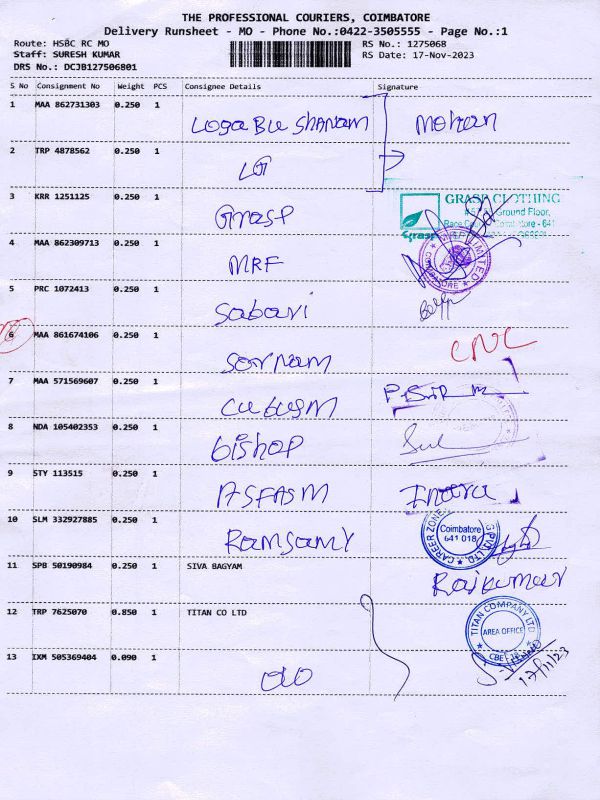 THE PROFESSIONAL COURIERS, COIMBATORE
Delivery Runsheet - MO - Phone No.:0422-3505555 - Page No.:1
Route: HSBC RC MO RS No.: 1275068
Staff: SURESH KUMAR RS Date: 17-Nov-2023
DRS No.: DCJB127506801
S No Consignment No Weight PCS Consignee Details Signature
1 MAA 862731303 0.250 1 Loga Bhu Shanam Mohan
2 TRP 4878562 0.250 1 LG
3 KRR 1251125 0.250 1 Grasp GRASP CLOTHING
Ground Floor,
Grasp
4 MAA 862309713 0.250 1 MRF
5 PRC 1072413 0.250 1 Sabari
6 MAA 861674106 0.250 1 Sornam CNC
7 MAA 571569607 0.250 1
8 NDA 105402353 0.250 1 bishop
9 STY 113515 0.250 1
10 SLM 332927885 0.250 1 Ramsamy CAREER ZONE PVT. LTD. Coimbatore 641 018
11 SPB 50190984 0.250 1 SIVA BAGYAM Rajkumar
12 TRP 7625070 0.850 1 TITAN CO LTD TITAN COMPANY LTD AREA OFFICE CBE-18
13 IXM 505369404 0.090 1 17/11/23